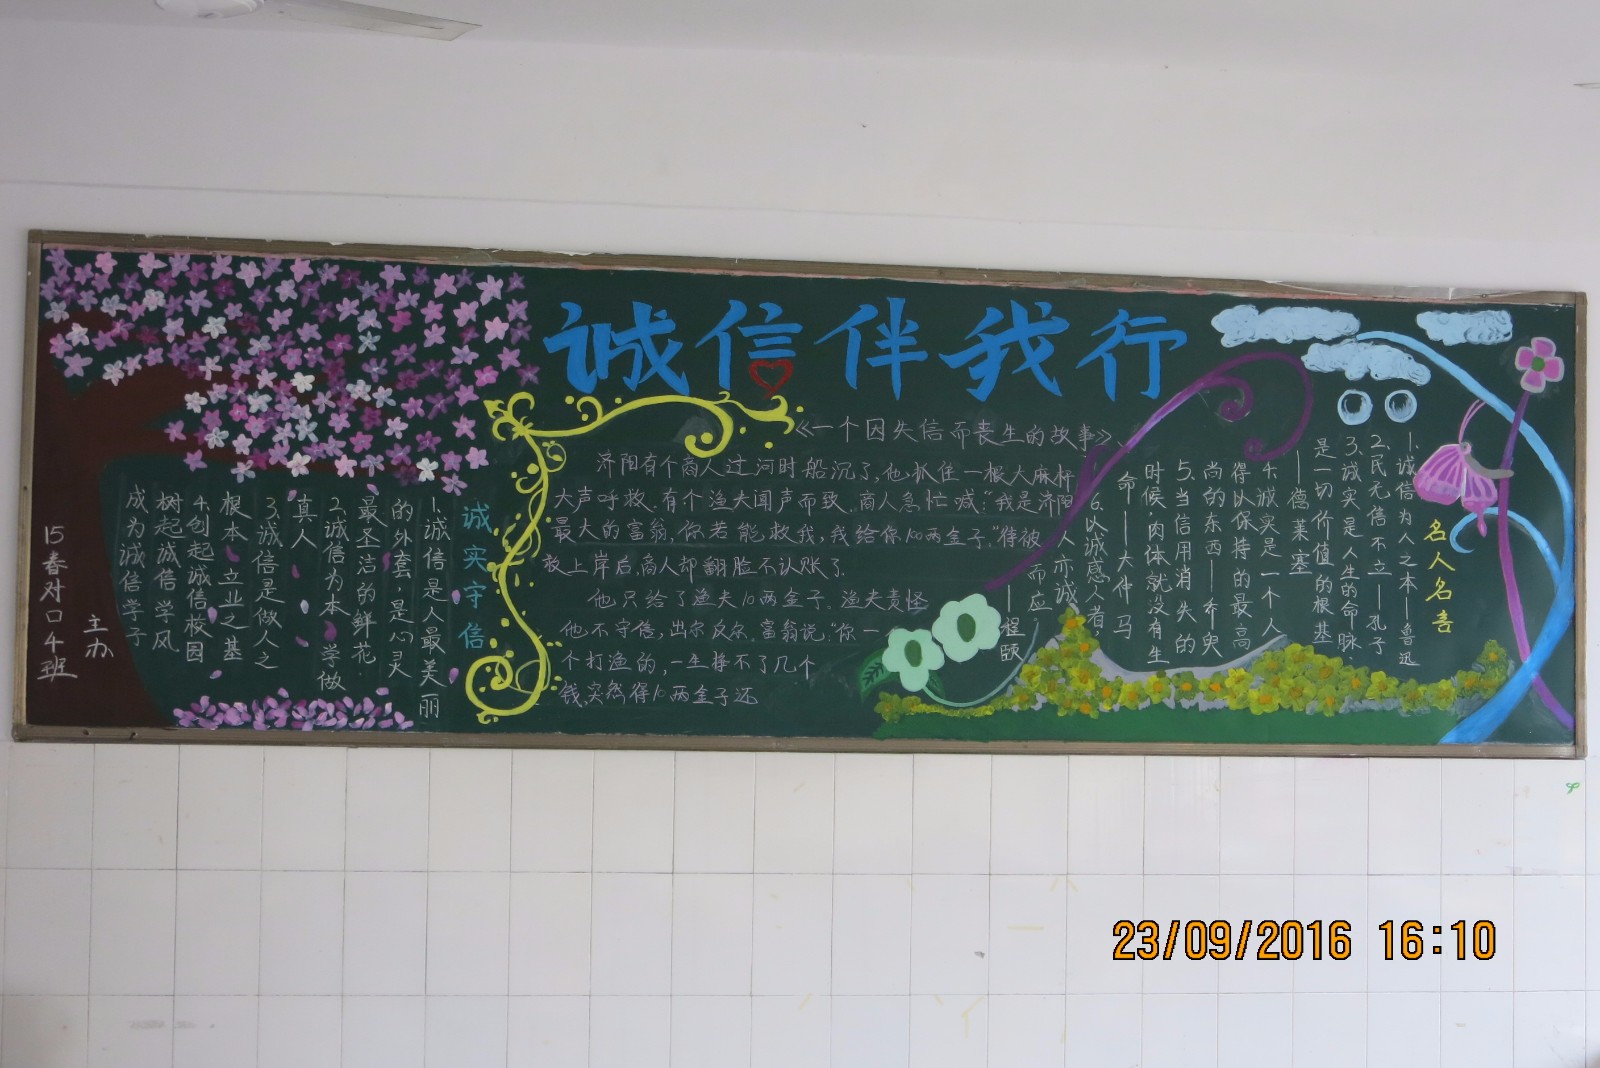 诚信伴我行
《一个因失信而丧生的故事》
济阳有个商人过河时船沉了,他抓住一根大麻杆
大声呼救。有个渔夫闻声而致。商人急忙喊:"我是济阳
最大的富翁,你若能救我,我给你100两金子。"待被
救上岸后,商人却翻脸不认账了.
他只给了渔夫10两金子。渔夫责怪
他不守信,出尔反尔。富翁说:"你一
个打渔的,一生挣不了几个
钱,突然得10两金子还
名人名言
1.诚信为人之本——鲁迅
2.民无信不立——孔子
3.诚实是人生的命脉,
是一切价值的根基
——德莱塞
4.诚实是一个人
得以保持的最高
尚的东西——乔叟
5.当信用消失的
时候,肉体就没有生
命——大仲马
6.以诚感人者,
人亦诚
而应。
——程颐
诚实守信
1.诚信是人最美丽
的外套,是心灵
最圣洁的鲜花.
2.诚信为本,学做
真人
3.诚信是做人之
根本 立业之基
4.创起诚信校园
树起诚信学风
成为诚信学子
主办
15春对口4班
23/09/2016 16:10